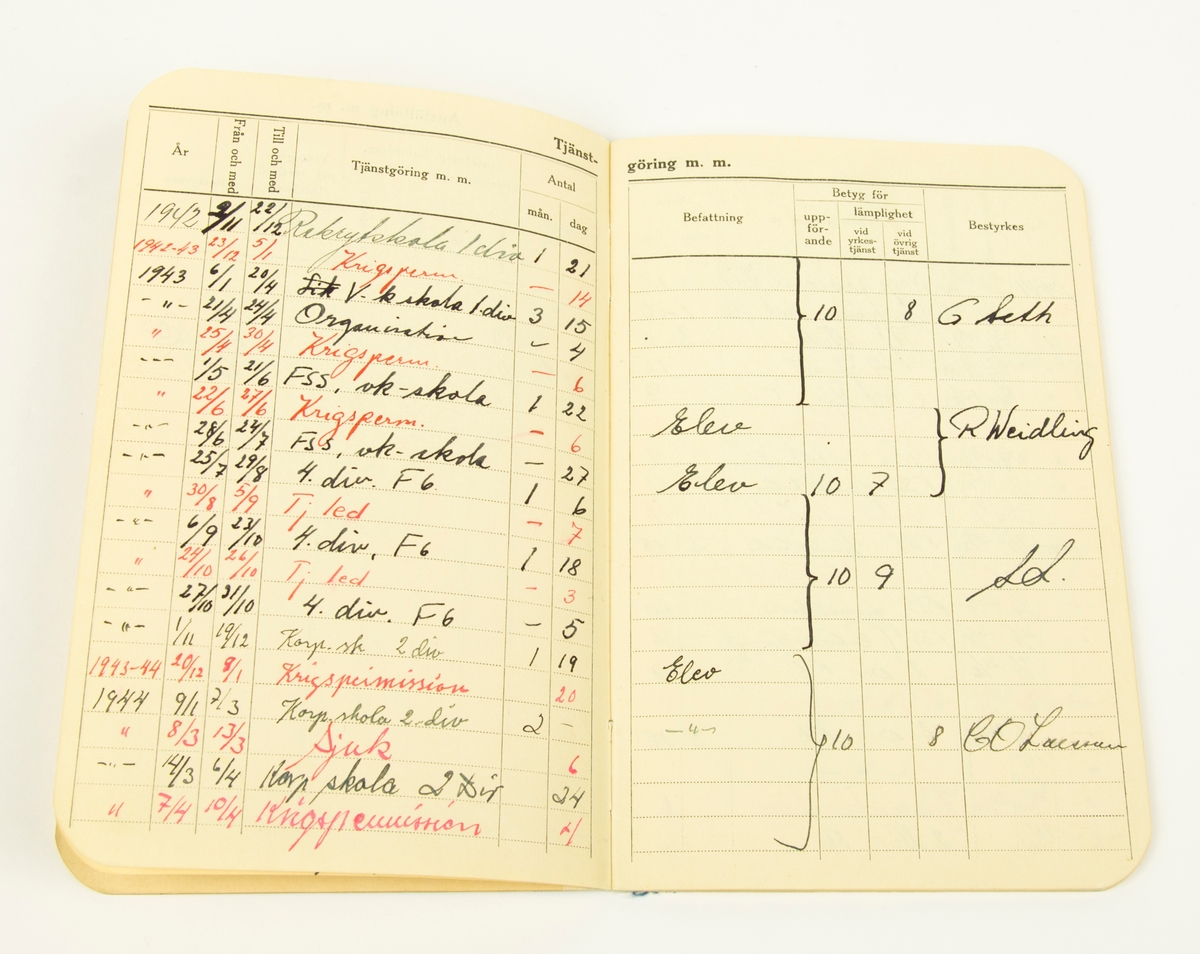 Tjänst-
År Från och med Till och med Tjänstgöring m. m. Antal
mån. dag
1942 2/11 22/12 Rekrytskola 1 div 1 21
1942-43 23/12 5/1 Krigsperm — 14
1943 6/1 20/4 V-k skola 1. div 3 15
-"- 21/4 24/4 Organisation - 4
" 25/4 30/4 Krigsperm. — 6
-"- 1/5 21/6 FSS, vk-skola 1 22
" 22/6 27/6 Krigsperm. — 6
-"- 28/6 24/7 FSS, vk-skola — 27
-"- 25/7 29/8 4. div. F6 1 6
" 30/8 5/9 Tj led — 7
-"- 6/9 23/10 4. div. F6 1 18
" 24/10 26/10 Tj led — 3
-"- 27/10 31/10 4. div. F6 — 5
-"- 1/11 19/12 Korp. sk 2 div 1 19
1943-44 20/12 8/1 Krigspermission 20
1944 9/1 7/3 Korp. skola 2. div 2 —
" 8/3 13/3 Sjuk 6
-"- 14/3 6/4 Korp skola 2 Div 24
" 7/4 10/4 Krigspermission 4
göring m. m.
Befattning Betyg för Bestyrkes
upp-för-ande lämplighet
vid yrkes-tjänst vid övrig tjänst
10 8 G Seth
Elev R Weidling
Elev 10 7
10 9
Elev
-"- 10 8